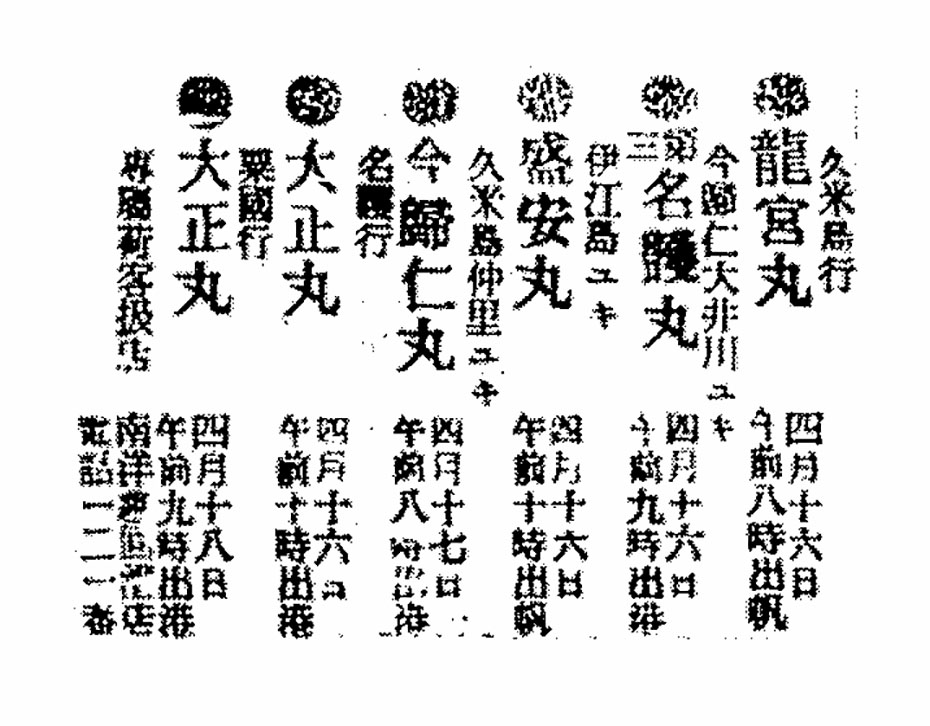 久米島行
龍宮丸
四月十六日
午前八時出帆
今歸仁大井川ユキ
第三名護丸
四月十六日
午前九時出港
伊江島ユキ
盛安丸
四月十六日
午前十時出帆
久米島仲里ユキ
今歸仁丸
四月十七日
午前八時出港
名護行
大正丸
四月十六日
午前十時出港
粟國行
大正丸
四月十八日
午前九時出港
客扱店
南洋店
電話二一番